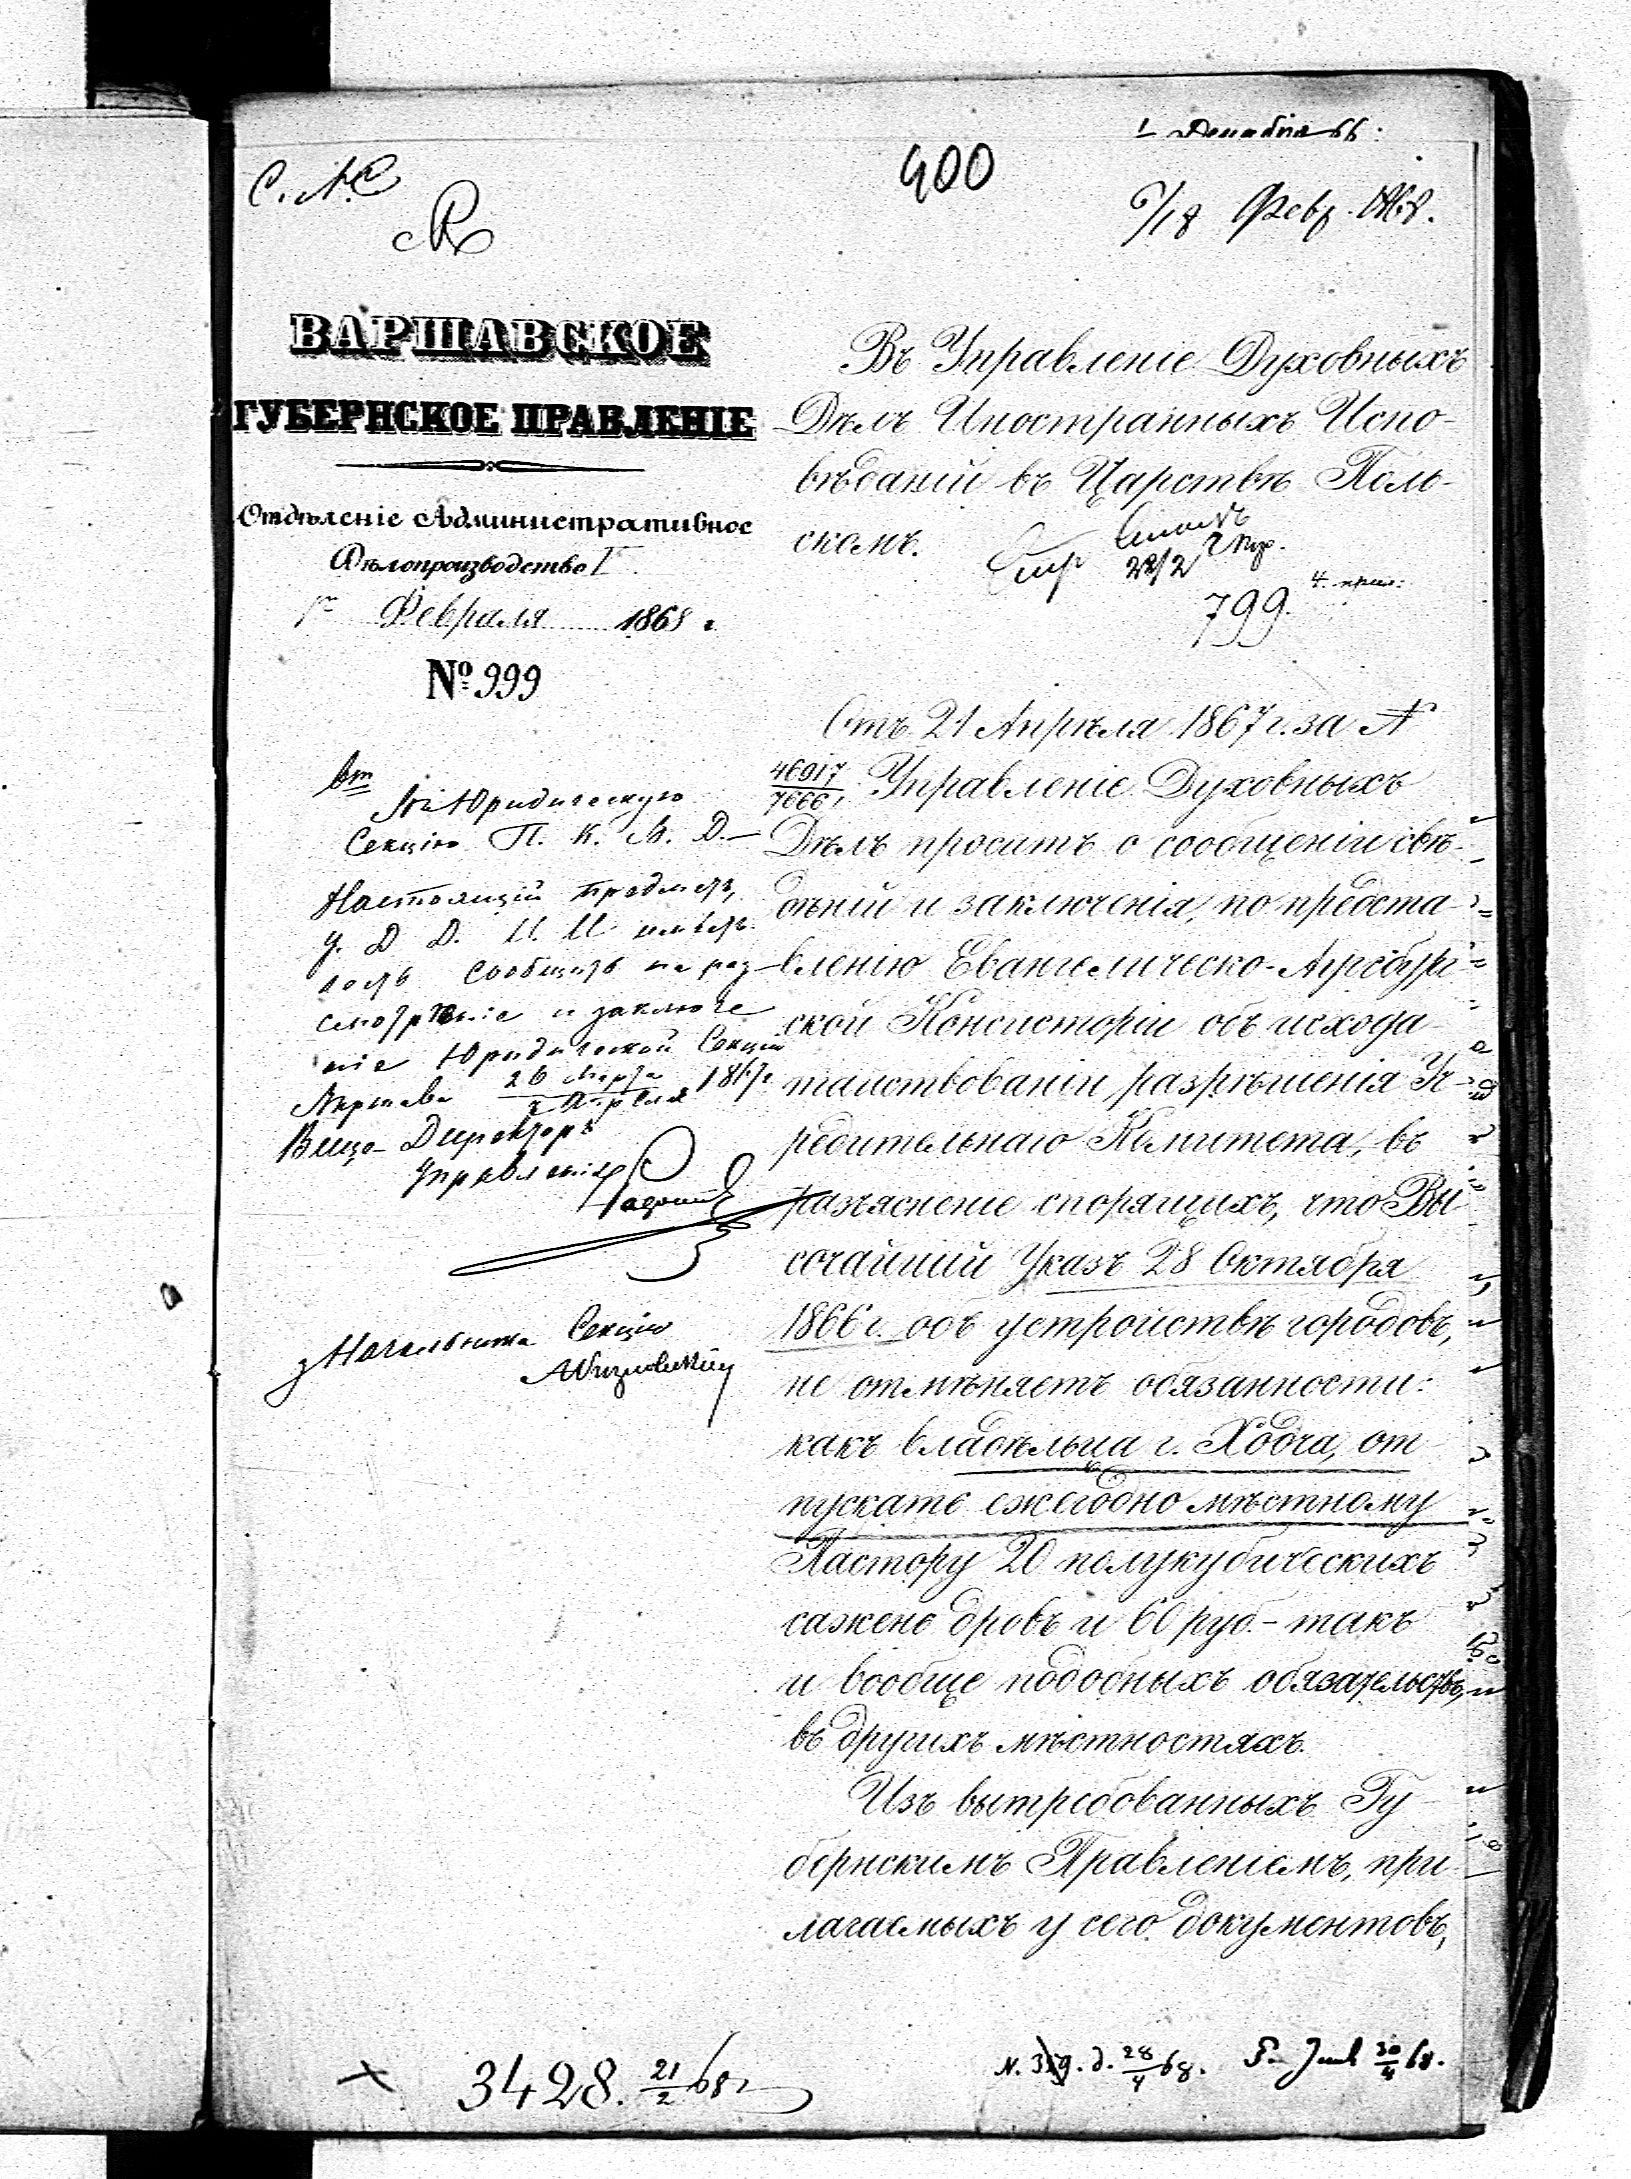 1 Декабря 66.
400
6/18 Февр. 1868.
С. А. С
ВАРШАВСКОЕ
ГУБЕРНСКОЕ ПРАВЛЕНІЕ
Отдѣленіе Административное
Дѣлопроизводство I
1го Февраля 1868 г.
№ 999
Въ Управленіе Духовныхъ
Дѣлъ Иностранныхъ Испо-
вѣданій въ Царствѣ Поль-
скомъ.
22/2
4. прил:
799.
Отъ 21 Апрѣля 1867 г. за №
46917/7666, Управленіе Духовныхъ
Дѣлъ проситъ о сообщеніи свѣ-
дѣній и заключенія, по предста-
вленію Евангелическо-Аугсбург-
ской Консисторіи объ исхода-
тайствованіи разрѣшенія Уч-
редительнаго Комитета, въ
разъясненіе спорящихъ, что Вы-
сочайшій Указъ 28 Октября
1866 г. объ устройствѣ городовъ,
не отмѣняетъ обязанности:
какъ владѣльца г. Ходча, от-
пускать ежегодно мѣстному
Пастору 20 полукубическихъ
сажень дровъ и 60 руб. - такъ
и вообще подобныхъ обязательствъ,
въ другихъ мѣстностяхъ.
Изъ вытребованныхъ Гу-
бернскимъ Правленіемъ, при-
лагаемыхъ у сего документовъ,
Въ Юридическую
Секцію П. К. В. Д. —
Настоящій предметъ,
У. Д. Д. И. И имѣетъ
честь сообщить на раз-
смотрѣніе и заключе
ніе Юридической Секціи
Варшава 26 Марта/7 Апрѣля 1867 г.
Вице-Директоръ
Управленія
Начальника Секціи
3428. 21/2 68 г
N. 319. д. 28/4 68. 30/4 68.